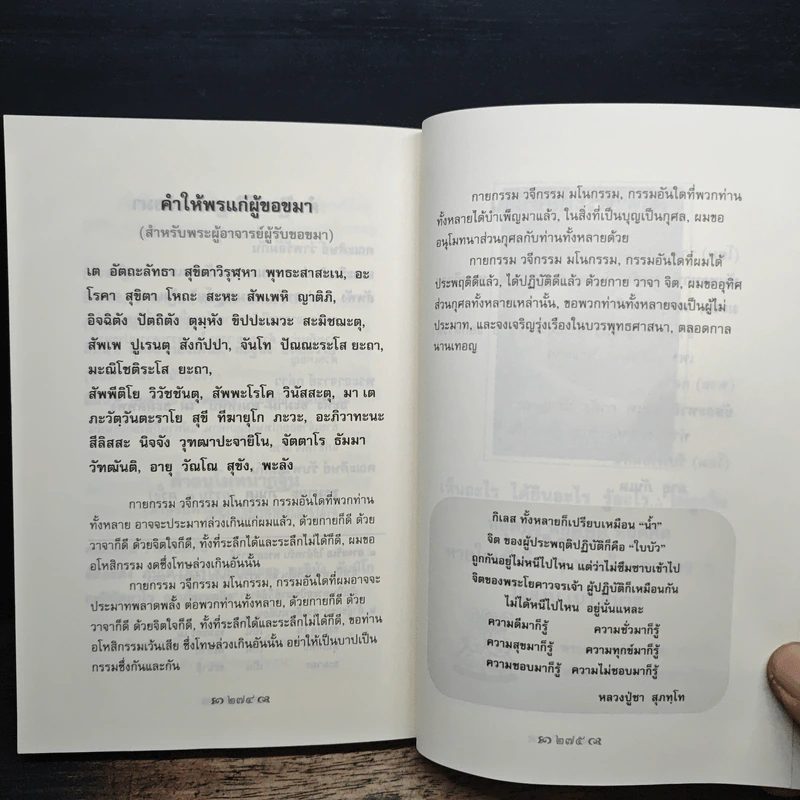 คำให้พรแก่ผู้ขอขมา
(สำหรับพระผู้อาจารย์ผู้รับขอขมา)
เต อัตถะลัทธา สุขิตาวิรุฬฺหา พุทธะสาสะเน, อะ
โรคา สุขิตา โหถะ สะหะ สัพเพหิ ญาติภิ,
อิจฉิตัง ปัตถิตัง ตุมฺหัง ขิปปะเมวะ สะมิชฌะตุ,
สัพเพ ปูเรนตุ สังกัปปา, จันโท ปัณณะระโส ยะถา,
มะณิโชติระโส ยะถา,
สัพพีติโย วิวัชชันตุ, สัพพะโรโค วินัสสะตุ, มา เต
ภะวัตฺวันตะราโย สุขี ทีฆายุโก ภะวะ, อะภิวาทะนะ
สีลิสสะ นิจจัง วุฑฒาปะจายิโน, จัตตาโร ธัมมา
วัฑฒันติ, อายุ วัณโณ สุขัง, พะลัง
กายกรรม วจีกรรม มโนกรรม กรรมอันใดที่พวกท่าน
ทั้งหลาย อาจจะประมาทล่วงเกินแก่ผมแล้ว, ด้วยกายก็ดี ด้วย
วาจาก็ดี ด้วยจิตใจก็ดี, ทั้งที่ระลึกได้และระลึกไม่ได้ก็ดี, ผมขอ
อโหสิกรรม งดซึ่งโทษล่วงเกินอันนั้น
กายกรรม วจีกรรม มโนกรรม, กรรมอันใดที่ผมอาจจะ
ประมาทพลาดพลั้ง ต่อพวกท่านทั้งหลาย, ด้วยกายก็ดี ด้วย
วาจาก็ดี ด้วยจิตใจก็ดี, ทั้งที่ระลึกได้และระลึกไม่ได้ก็ดี, ขอท่าน
อโหสิกรรมเว้นเสีย ซึ่งโทษล่วงเกินอันนั้น อย่าให้เป็นบาปเป็น
กรรมซึ่งกันและกัน
๒๗๔
กายกรรม วจีกรรม มโนกรรม, กรรมอันใดที่พวกท่าน
ทั้งหลายได้บำเพ็ญมาแล้ว, ในสิ่งที่เป็นบุญเป็นกุศล, ผมขอ
อนุโมทนาส่วนกุศลกับท่านทั้งหลายด้วย
กายกรรม วจีกรรม มโนกรรม, กรรมอันใดที่ผมได้
ประพฤติดีแล้ว, ได้ปฏิบัติดีแล้ว ด้วยกาย วาจา จิต, ผมขออุทิศ
ส่วนกุศลทั้งหลายเหล่านั้น, ขอพวกท่านทั้งหลายจงเป็นผู้ไม่
ประมาท, และจงเจริญรุ่งเรืองในบวรพุทธศาสนา, ตลอดกาล
นานเทอญ
กิเลส ทั้งหลายก็เปรียบเหมือน “น้ำ”
จิต ของผู้ประพฤติปฏิบัติก็คือ “ใบบัว”
ถูกกันอยู่ไม่หนีไปไหน แต่ว่าไม่ซึมซาบเข้าไป
จิตของพระโยคาวจรเจ้า ผู้ปฏิบัติก็เหมือนกัน
ไม่ได้หนีไปไหน อยู่นั่นแหละ
ความดีมาก็รู้ ความชั่วมาก็รู้
ความสุขมาก็รู้ ความทุกข์มาก็รู้
ความชอบมาก็รู้ ความไม่ชอบมาก็รู้
หลวงปู่ชา สุภทฺโท
๒๗๕